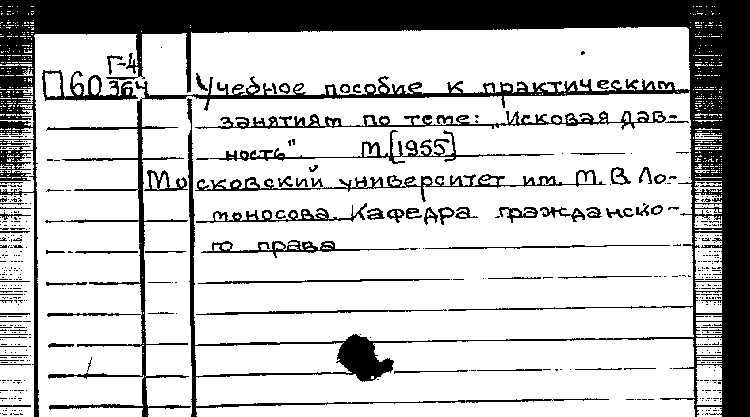 Г-4
П60 364 Учебное пособие к практическим
занятиям по теме: „Исковая дав-
ность". М.[1955]
Московский университет им. М. В. Ло-
моносова. Кафедра гражданско-
го права